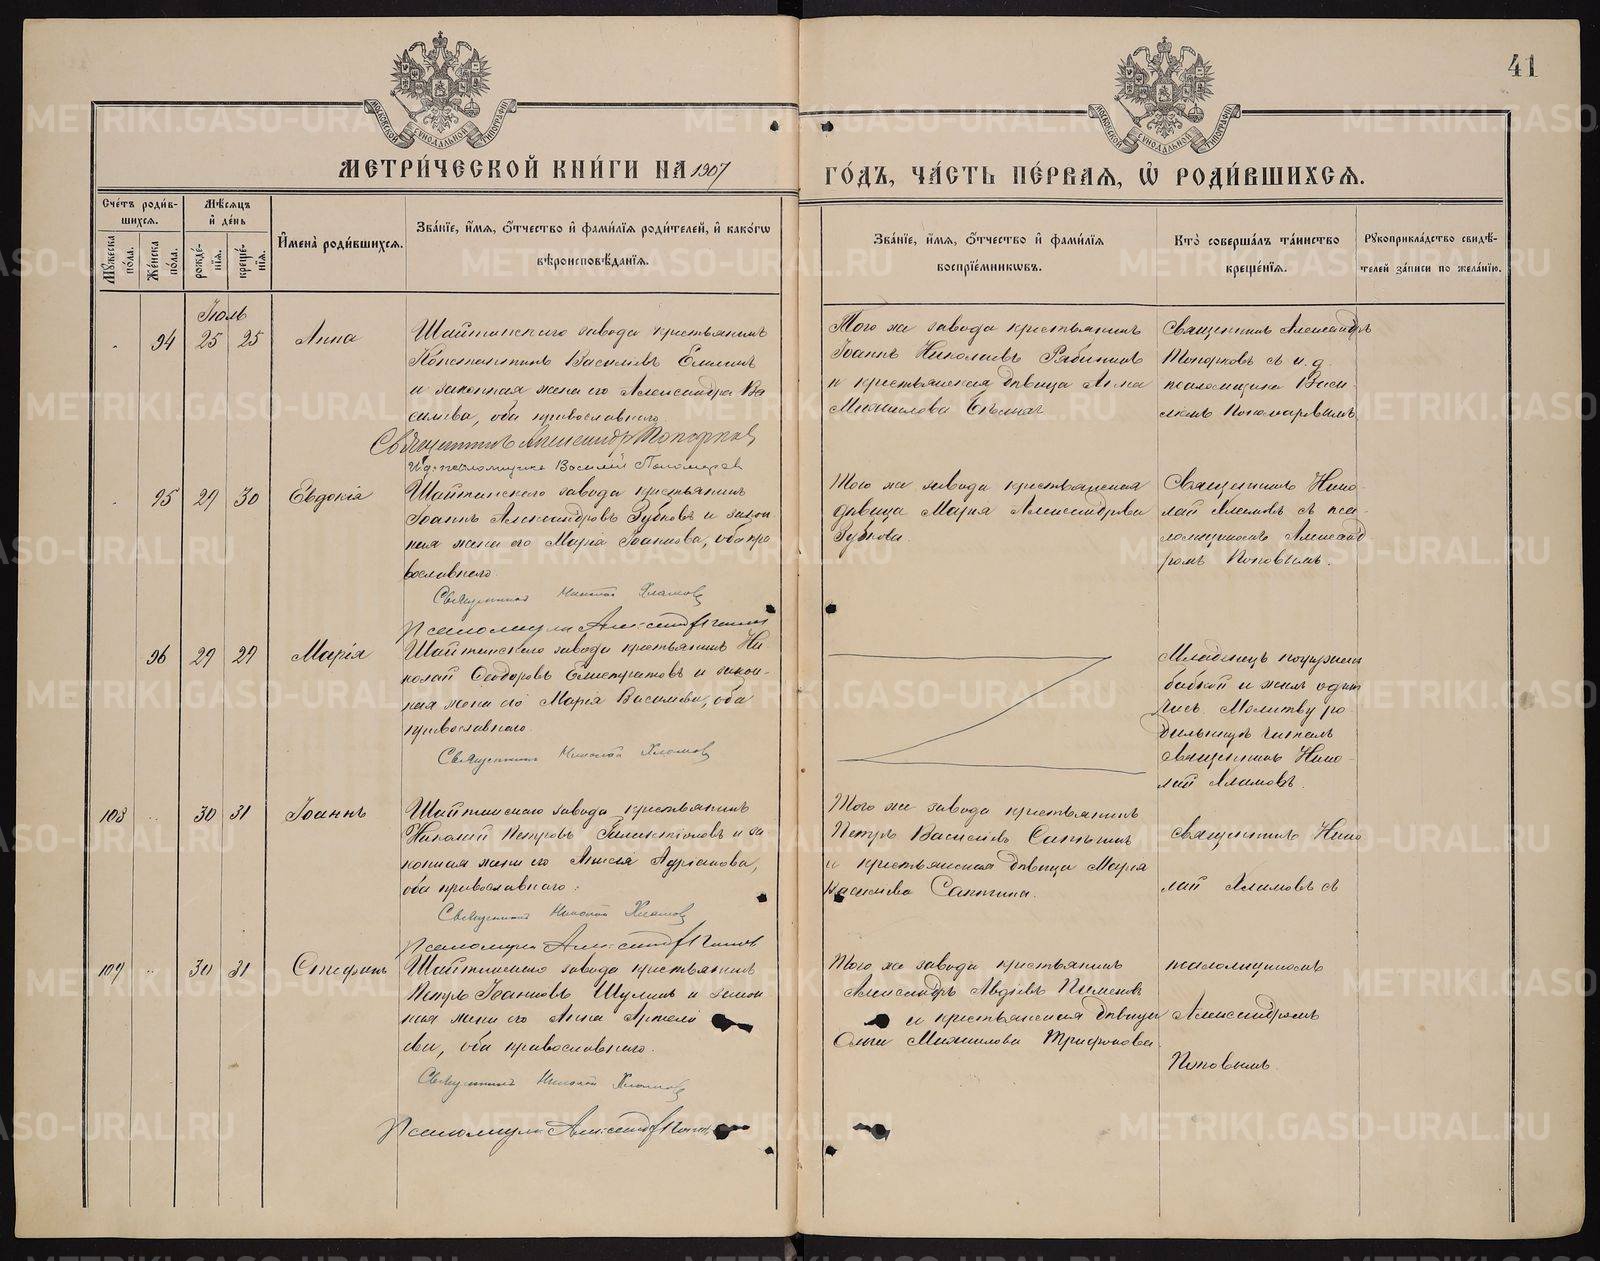 41
МЕТРИ́ЧЕСКОЙ КНИ́ГИ НА 1907
ГО́ДЪ, ЧА́СТЬ ПЕ́РВАѦ, Ѡ҆ РОДИ́ВШИХСѦ.
Сче́тъ роди́в-
шихсѧ.
Мѣ́сѧцъ
и҆ де́нь
Мꙋ́жеска по́ла.
Же́нска по́ла.
рожде́-
нїѧ.
креще́-
нїѧ.
И҆мена̀ роди́вшихсѧ.
Зва́нїе, и҆́мѧ, о҆́тчество и҆ фами́лїѧ роди́телей, и҆ како́гѡ
вѣроисповѣ́данїѧ.
Зва́нїе, и҆́мѧ, о҆́тчество и҆ фами́лїѧ
воспрїе́мникѡвъ.
Кто̀ соверша́лъ та́инство
креще́нїѧ.
Рꙋкоприкла́дство свидѣ́-
телей за́писи по жела́нїю.
Іюль
94 25 25 Анна
Шайтанскаго завода крестьянинъ
Константинъ Васильевъ
и законная жена его Александра Ва
сильева, оба православнаго
Священникъ Александръ Топорковъ
И. д. псаломщика Василій Пономарев
Того же завода крестьянинъ
Іоаннъ Николаевъ Рябининъ
и крестьянская дѣвица Анна
Михаилова
Священникъ Александръ
Топорковъ съ и. д.
псаломщика Васи-
лемъ Пономаревымъ
95 29 30 Евдокія
Шайтанскаго завода крестьянинъ
Іоаннъ Александровъ Зубковъ и закон
ная жена его Марія Іоаннова, оба пра
вославнаго.
Священникъ Николай Хламовъ
Псаломщикъ Александръ Поповъ
Того же завода крестьянская
дѣвица Марія Александрова
Зубкова.
Священникъ Нико-
лай Хламовъ съ пса-
ломщикомъ Александ
ромъ Поповымъ.
96 29 29 Марія
Шайтанскаго завода крестьянинъ Ни
колай Ѳеодоровъ Елистратовъ и закон-
ная жена его Марія Васильева, оба
православнаго.
Священникъ Николай Хламовъ
Младенецъ погружен
бабкой и
Молитву ро
дильницѣ читалъ
Священникъ Нико-
лай Хламовъ.
108 30 31 Іоаннъ
Шайтанскаго завода крестьянинъ
Николай Петровъ и за
конная жена его Анисія Адріанова,
оба православнаго.
Священникъ Николай Хламовъ
Псаломщикъ Александръ Поповъ
Того же завода крестьянинъ
Петръ Васильевъ
и крестьянская дѣвица Марія
Васильева
Священникъ Нико
лай Хламовъ съ
109 30 31 Стефанъ
Шайтанскаго завода крестьянинъ
Петръ Іоанновъ Шулинъ и закон
ная жена его Анна Артемі
ева, оба православнаго.
Священникъ Николай Хламовъ
Псаломщикъ Александръ Поповъ
Того же завода крестьянинъ
Александръ Авдіевъ Пименовъ
и крестьянская дѣвица
Ольга Михаилова Трифонова.
псаломщикомъ
Александромъ
Поповымъ.